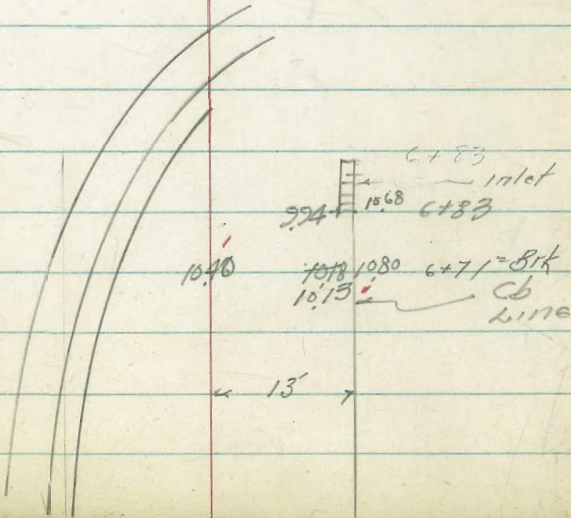 6+83
inlet
9.94 10.68 6+83
10.40 10.18 10.80 6+71 = Brk
10.13 Cb
Line
13'